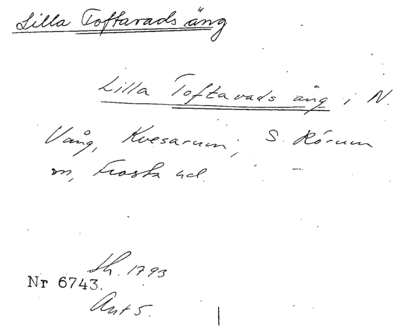 Lilla Toftavads äng
Lilla Toftavads äng i N.
Vång, Kvesarum, S. Rörum
Frosta hd.
Nr 6743.
1793
Akt 5.